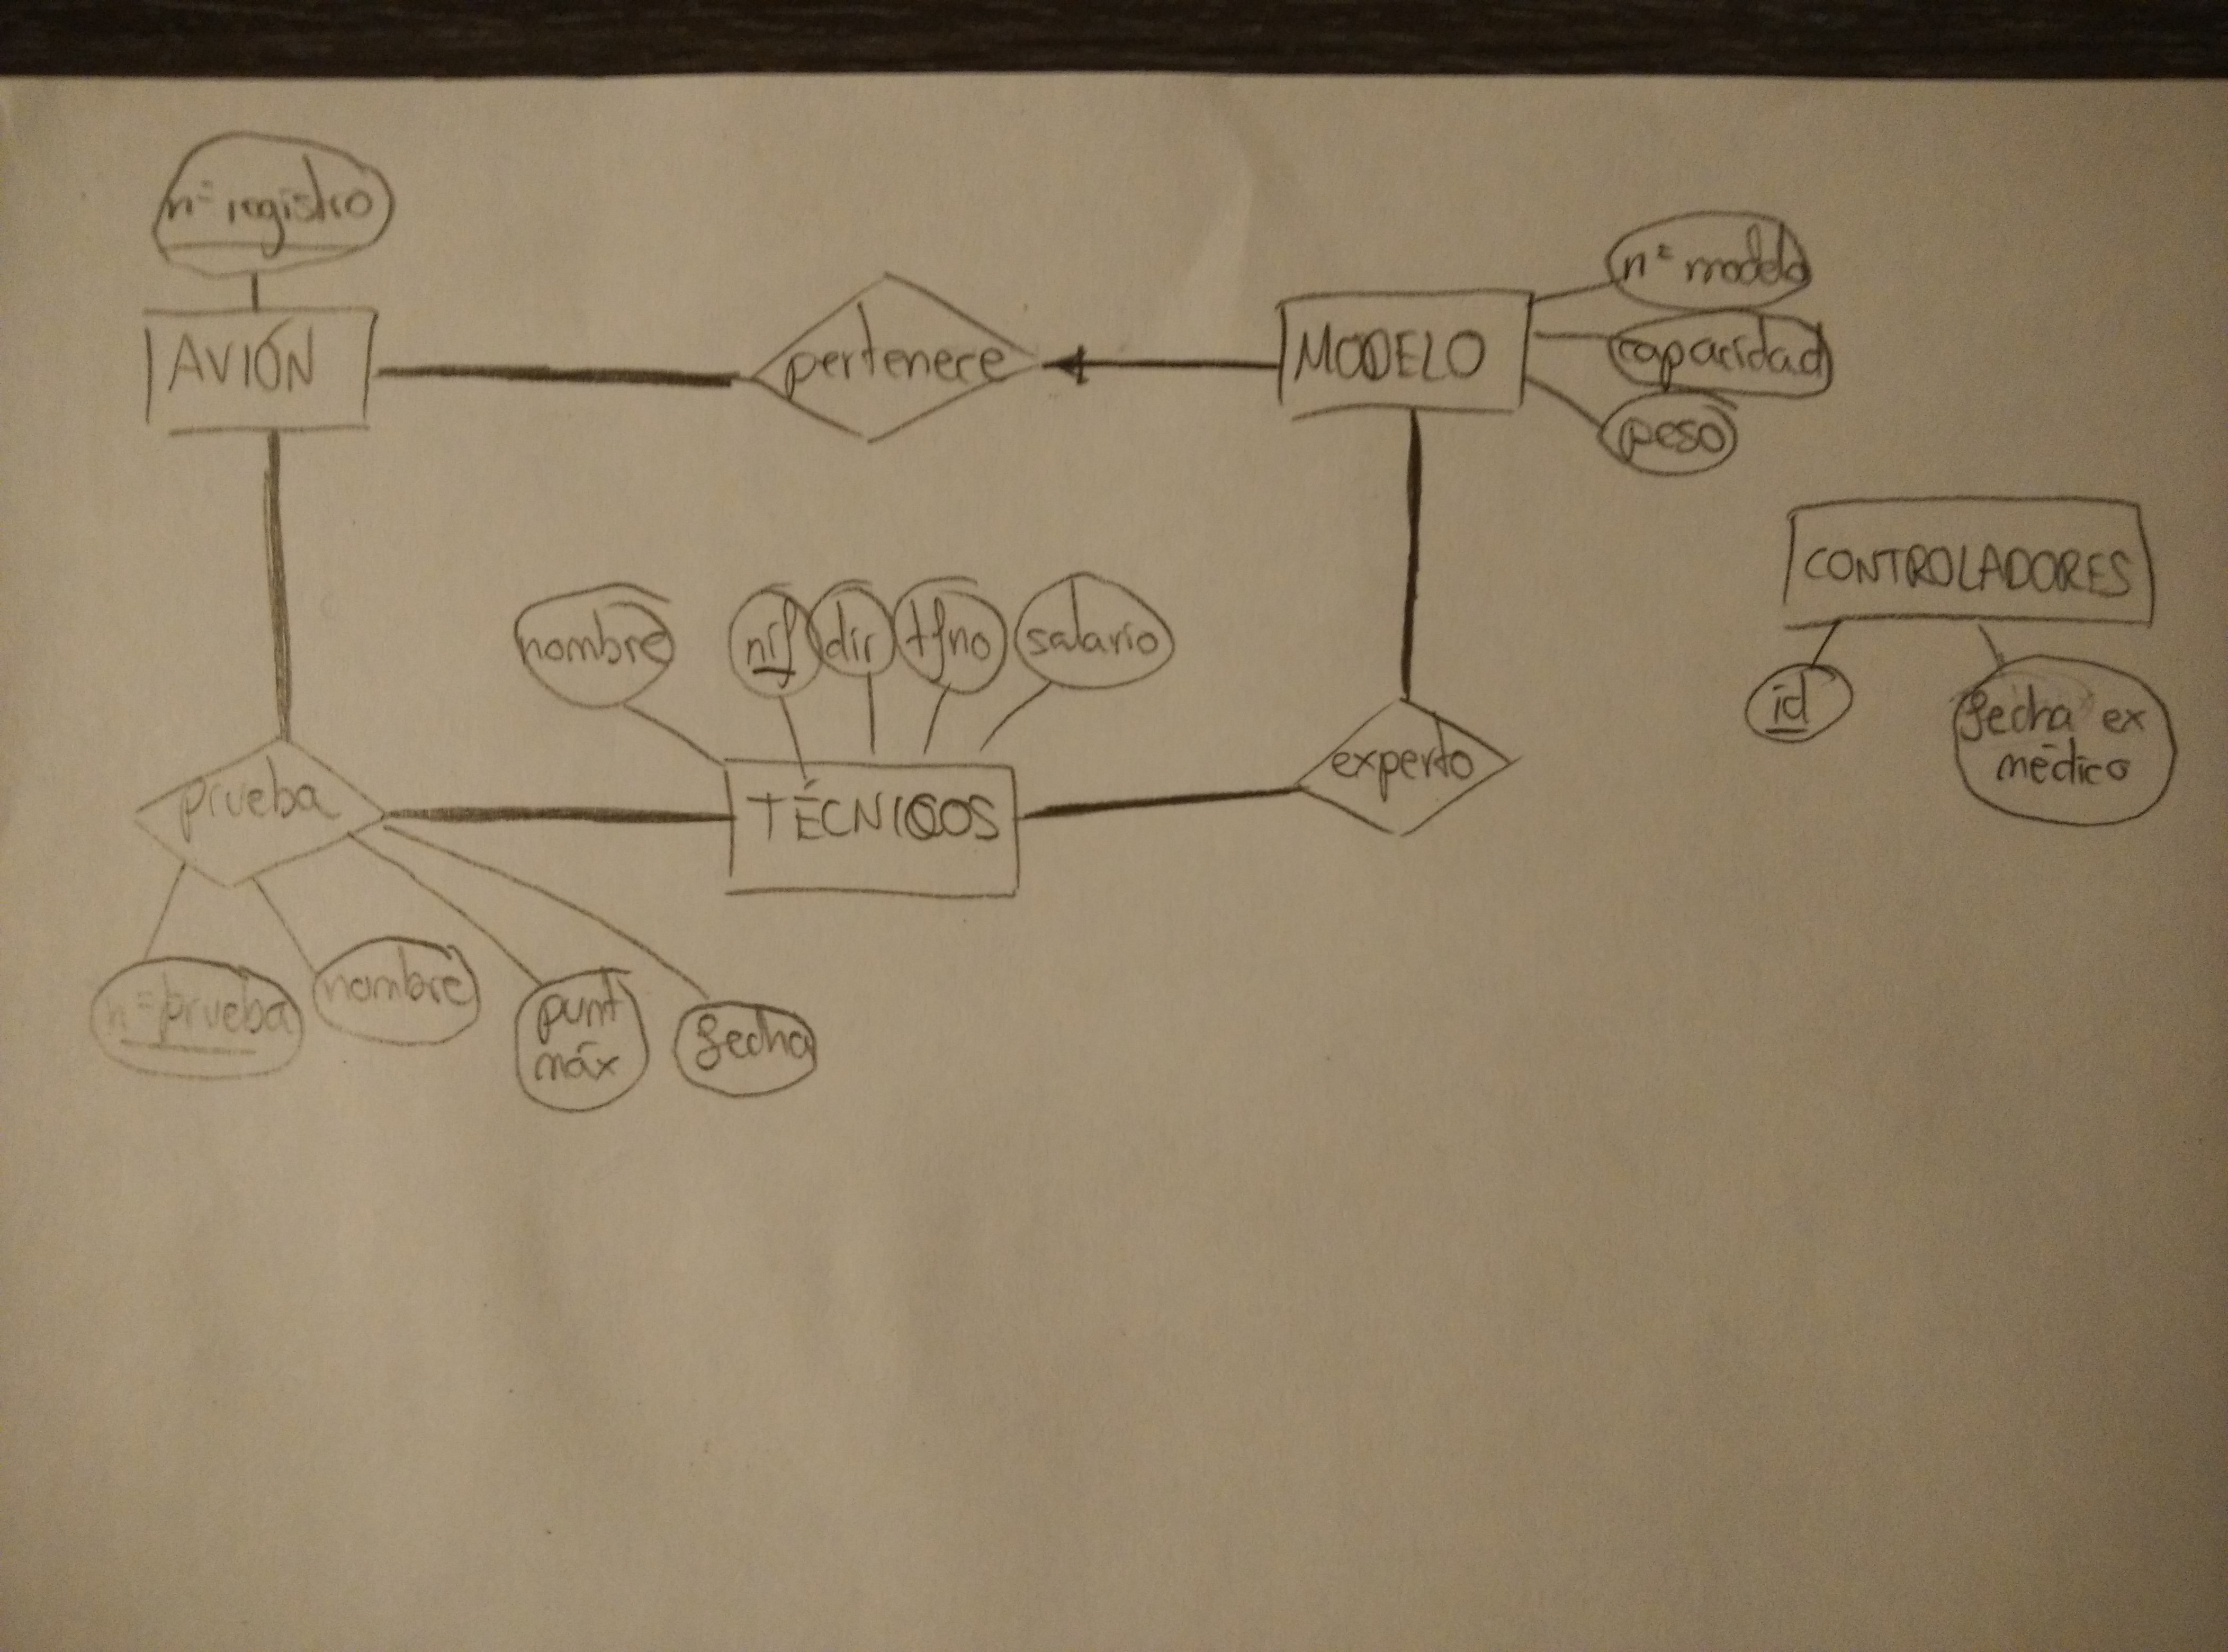 nº registro
AVIÓN
pertenece
MODELO
nº modelo
capacidad
peso
CONTROLADORES
id
fecha ex
médico
nombre
nif
dir
tfno
salario
TÉCNICOS
experto
prueba
nº prueba
nombre
punt
máx
fecha